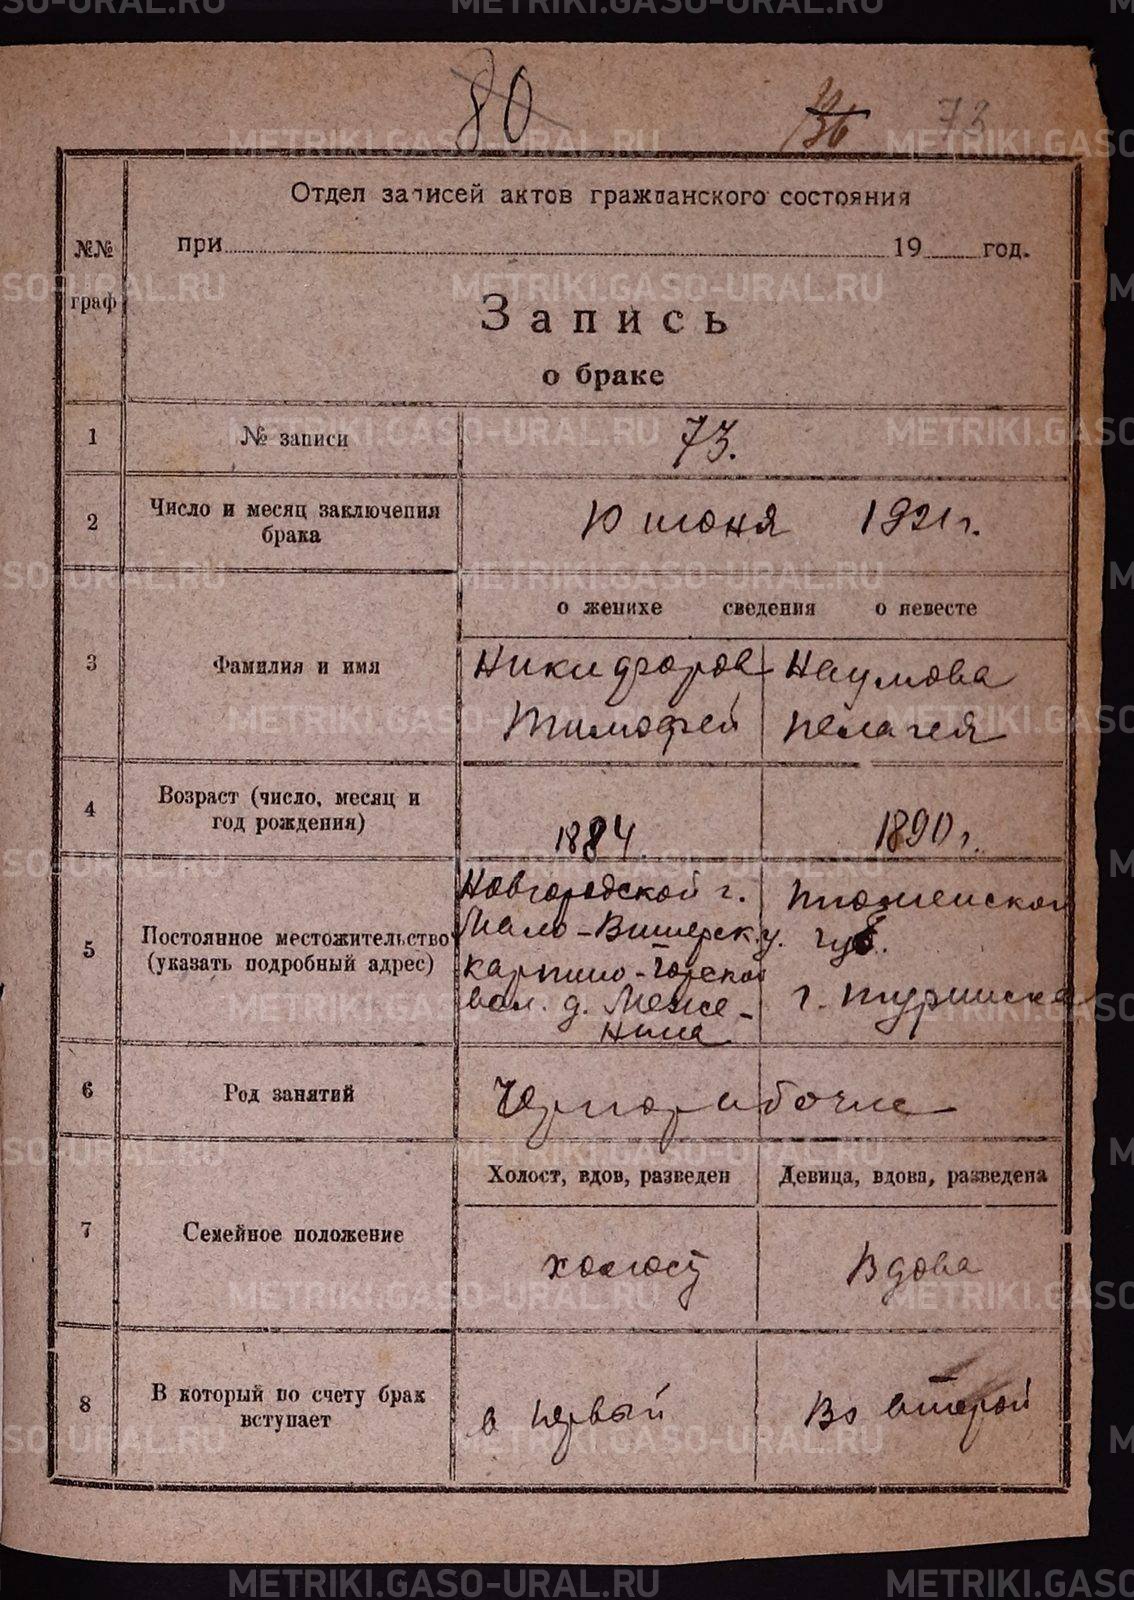 80
136 73
Отдел записей актов гражданского состояния
№№ граф
при 19 год.
Запись
о браке
1 № записи 73.
2 Число и месяц заключения брака 10 июня 1921 г.
о женихе сведения о невесте
3 Фамилия и имя
Никифоров Наумова
Тимофей Пелагея
4 Возраст (число, месяц и год рождения) 1884. 1890 г.
5 Постоянное местожительство (указать подробный адрес)
Новгородской г. Тюменской
Мало-Вишерск. у. губ.
Карпино-Горской
вол. д. Меже- г. Туринска
нина
6 Род занятий Чернорабочие
Холост, вдов, разведен Девица, вдова, разведена
7 Семейное положение холост Вдова
8 В который по счету брак вступает в первый Во второй
METRIKI.GASO-URAL.RU